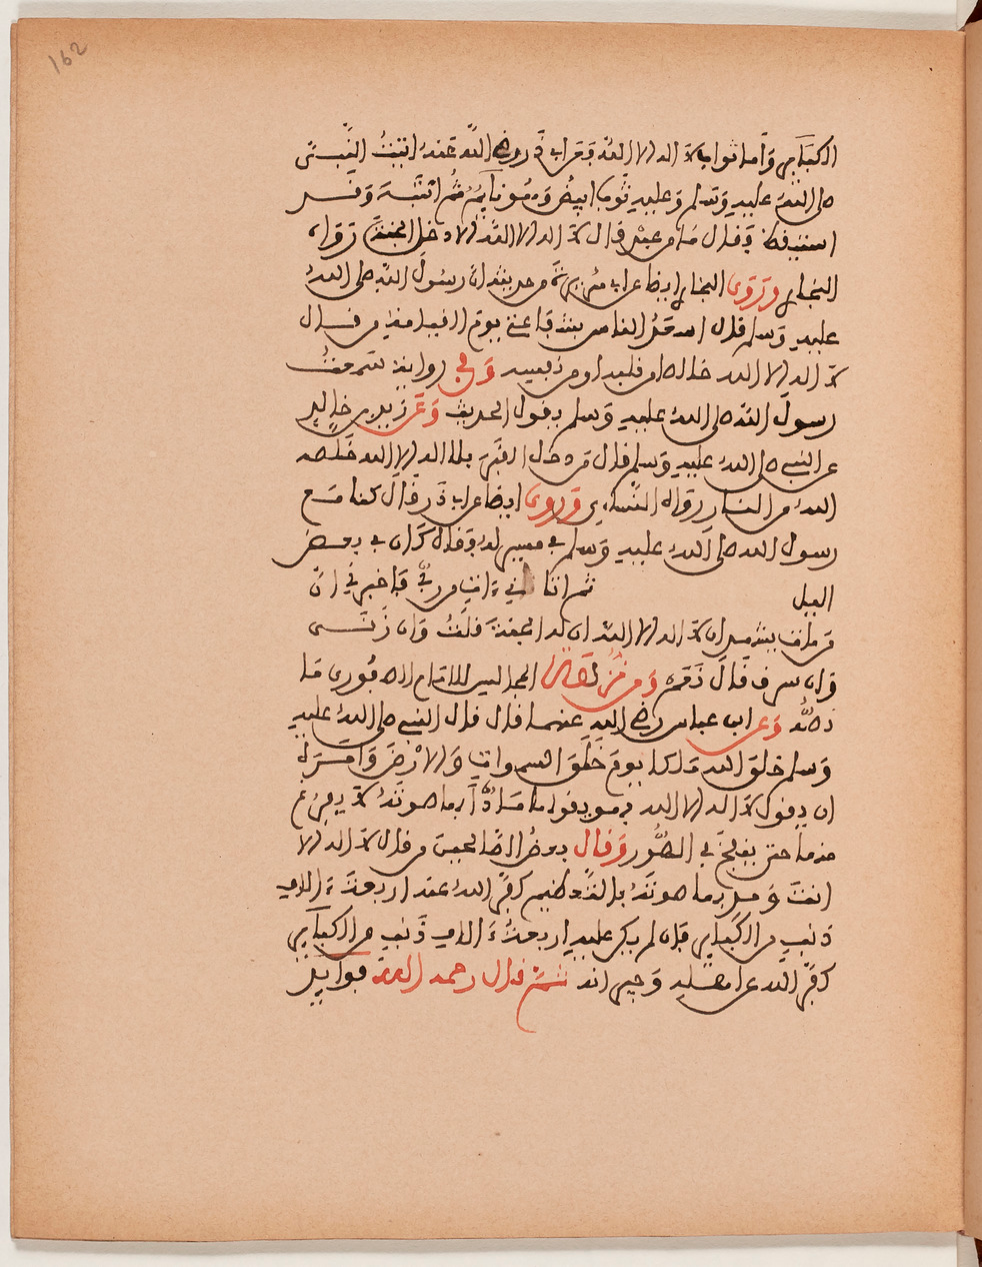 162
الكبآير وأما ثواب لا اله الا الله فعن اب ذر رضي الله عنه اتيت النبي
صلى الله عليه وسلم وعليه ثوب ابيض وهو نايم ثم اتيته وقد
استيقظ فقال ما من عبد قال لا اله الا الله الا دخل الجنة رواه
البخاري وروى البخاري ايضا عن اب هريرة من حديثه ان رسول الله صلى الله
عليه وسلم قال اسعد الناس بشفاعتي يوم القيامة من قال
لا اله الا الله خالصا من قلبه او من نفسه وفي رواية سمعت
رسول الله صلى الله عليه وسلم يقول الحديث وعن زيد بن خالد
عن النبي صلى الله عليه وسلم قال من دخل القبر بلا اله الا الله خلصه
الله من النار رواه النساءي وروى ايضا عن اب ذر قال كنا مع
رسول الله صلى الله عليه وسلم في مسير له وقال كان في بعض
اليل ثم اتاني ءات من ربي فاخبرني ان
من مات يشهد ان لا اله الا الله ان له الجنة قلت وان زنى
وان سرق قال نعم ومن المجالس للامام الاصبوري ما
نصه وعن ابن عباس رضي الله عنهما قال قال النبي صلى الله عليه
وسلم خلق الله ملكا يوم خلق السموات والارض وامره
ان يقول لا اله الا الله فهو يقولها مادّا بها صوته لا يفرغ
منها حتى ينفخ في الصور وقال بعض الصالحين من قال لا اله الا
الله ومد بها صوته بالتعظيم كفر الله عنه اربعة ءالاف
ذنب من الكبآير فان لم يكن عليه اربعة ءالاف ذنب من الكبآير
كفر الله عن اهله وجيرانه ثم قال رحمه الله فوايد